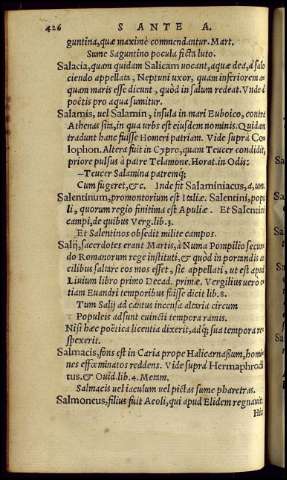 426 S ANTE A.
guntina, quæ maximè commendantur. Mart.
Sume Saguntino pocula ficta luto.
Salacia, quam quidam Salicam vocant, aquæ dea, à salo
ciendo appellata, Neptuni uxor, quam inferiorem a-
quam maris esse dicunt, quòd in salum redeat. Vnde à
poëtis pro aqua sumitur.
Salamis, vel Salamin, insula in mari Euboico, contra
Athenas sita, in qua urbs est eiusdem nominis. Quidam
tradunt hanc fuisse Homeri patriam. Vide suprà Co-
lophon. Altera fuit in Cypro, quam Teucer condidit,
priore pulsus à patre Telamone. Horat. in Odis:
—Teucer Salamina patremq;
Cum fugeret, &c. Inde fit Salaminiacus, a, um.
Salentinum, promontorium est Italiæ. Salentini, popu
li, quorum regio finitima est Apuliæ. Et Salentini
campi, de quibus Verg. lib. 3.
Et Salentinos obsedit milite campos.
Salij, sacerdotes erant Martis, à Numa Pompilio secun
do Romanorum rege instituti, & quòd in porandis an
cilibus saltare eos mos esset, sic appellati, ut est apud
Liuium libro primo Decad. primæ. Vergilius verò e-
tiam Euandri temporibus fuisse dicit lib. 8.
Tum Salij ad cantus incensa altaria circum
Populeis adsunt euincti tempora ramis.
Nisi hæc poëtica licentia dixerit, adq; sua tempora re-
spexerit.
Salmacis, fons est in Caria prope Halicarnassum, homi
nes effœminatos reddens. Vide suprà Hermaphrodi
tus. & Ouid. lib. 4. Metam.
Salmacis uel iaculum uel pictas sume pharetras.
Salmoneus, filius fuit Aeoli, qui apud Elidem regnauit.
Hic